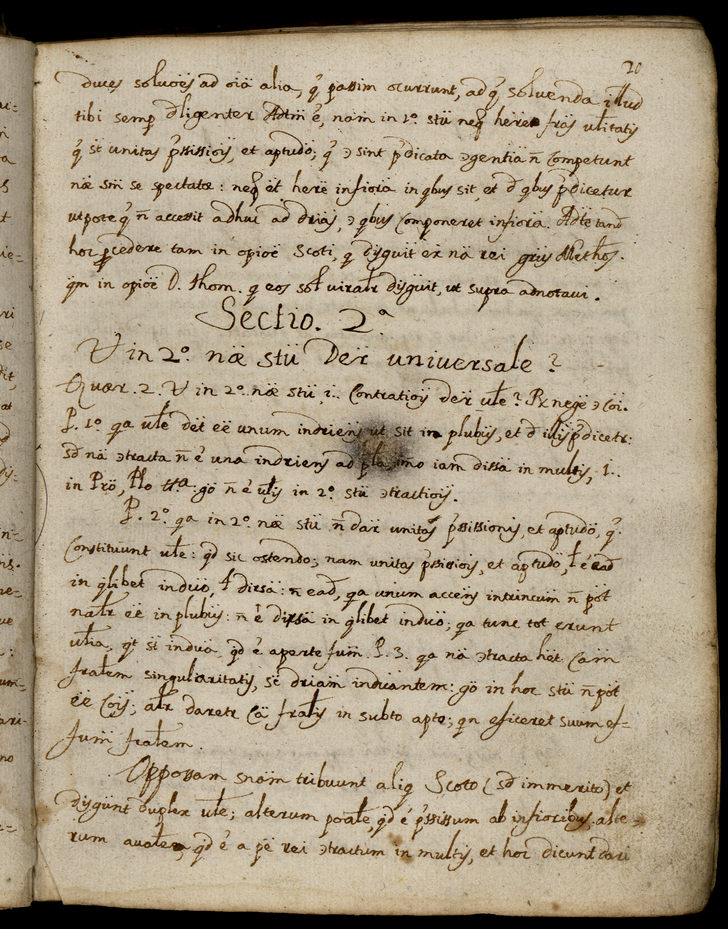 20
duces soluōes ad oīa alia, q̄ passim ocurrunt, ad q̄ soluenda illud
tibi semp diligenter Adtm̄ ē, nam in 1º. stū neq̄ here frās ulitatis
q̄ st̄ unitas p̄ssissiois, et aptudo; q̄ ɔ sint p̄dicata ɔgentia n̄ Competunt
næ sm̄ se spectatæ: neq̄ ēt herē infiora in qbus sit, et d̄ qbus p̄dicetur
utpote q̄ n̄ accessit adhuc ad drias, ɔ qbus Componeret infiora. Adte tand̄
hoc p̄cedere tam in opioē Scoti, q̄ disguit ex nā rei
qm in opioē D. thom. q̄ eos sol uiralr disguit, ut supra adnotaui.
Sectio. 2ª
V in 2º. næ stū Detr universale?
Quær. 2. V in 2º. næ stū, i.. Contratiois detr ule? Rx nege ɔ Coi.
P. 1º qa ule det eē unum indriens ut sit in plubis, et d̄ illis p̄dicetr:
sd̄ nā ɔtracta n̄ ē una indriens ad pla, imo iam dissa in multis, i..
in Prō, Plo ttª: gō n̄ ē ulis in 2º. stū ɔtractiois.
P. 2º. qa in 2º. næ stū n̄ dar unitas p̄ssissionis, et aptudo, q̄
Constituunt ule: qd̄ sic ostendo; nam unitas p̄ssissiois, et aptudo, ł ē ead̄
in qlibet induo, ł dirsa: n̄ ead̄, qa unum accens intrincum n̄ pōt
nālr eē in plubis: n̄ ē dirsa in qlibet induo; qa tunc tot erunt
ulia, qt̄ st̄ indua, qd̄ ē aperte fsum. P. 3. qa nā ɔtracta het Cām
fralem singularitatis, se driam induantem: gō in hoc stū n̄ pōt
eē Cois; alr daretr Cā fralis in subto apto; qn eficeret suum ef=
fum fralem.
Opposam snam tribuunt aliq̄ Scoto (sd̄ immerito) et
disgunt duplex ule; alterum poāle, qd̄ ē p̄ssissum ab infioribus. alte=
rum auale, qd̄ ē a pē rei ɔtractum in multis, et hoc dicunt dari